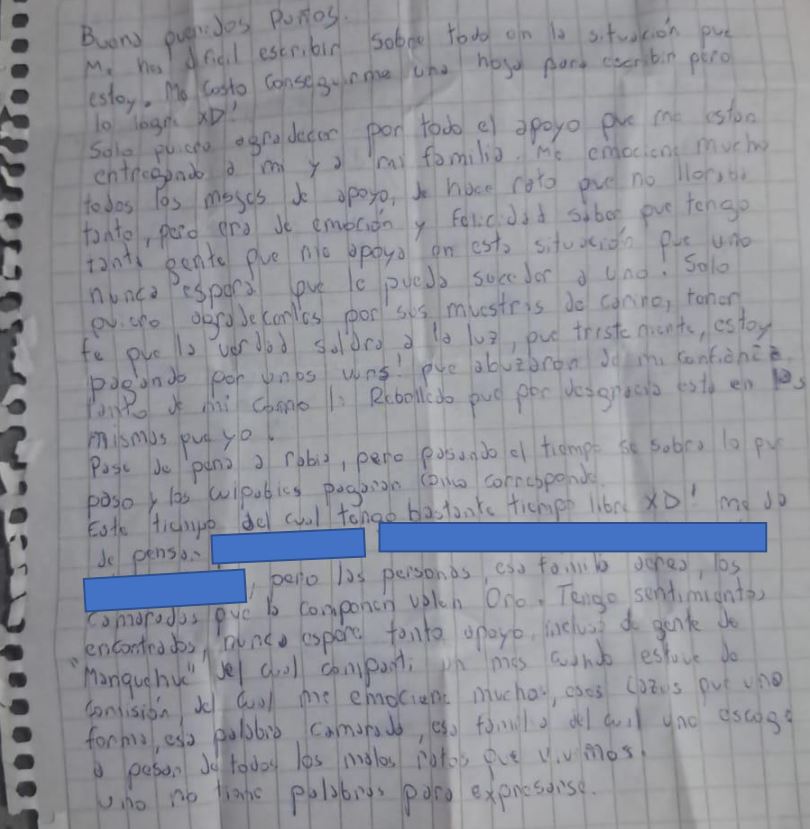 Bueno queridos Puntos.
Me has dificil escribir sobre todo en la situación que
estoy. Me costo conseguirme una hoja para escribir pero
lo logre XD!
Solo quiero agradecer por todo el apoyo que me estan
entregando a mi y a mi familia. Me emocione mucho
todos los msges de apoyo, de hace rato que no lloraba
tanto, pero era de emoción y felicidad saber que tengo
tanta gente que me apoya en esta situación que uno
nunca espera que le pueda suceder a uno. Solo
quiero agradecerles por sus muestras de cariño, tener
fe que la verdad saldra a la luz, que tristemente, estoy
pagando por unos wns! que abuzaron de mi confianza
tanto de mi como la Rebolledo que por desgracia esta en las
mismas que yo.
Pase de pena a rabia, pero pasando el tiempo se sabra lo que
paso y los culpables pagaran como corresponde.
Este tiempo del cual tengo bastante tiempo libre XD! me da
de pensar
, pero las personas, esa familia los
camaradas que la componen valen Oro. Tengo sentimientos
encontrados, nunca espere tanto apoyo, incluso de gente de
"Manquehue" del cual comparti un mes cuando estuve de
comisión, del cual me emocione mucho, esos lazos que uno
forma, esa palabra camarada, esa familia del cual uno escoge
a pesar de todos los malos ratos que vivimos.
Uno no tiene palabras para expresarse.